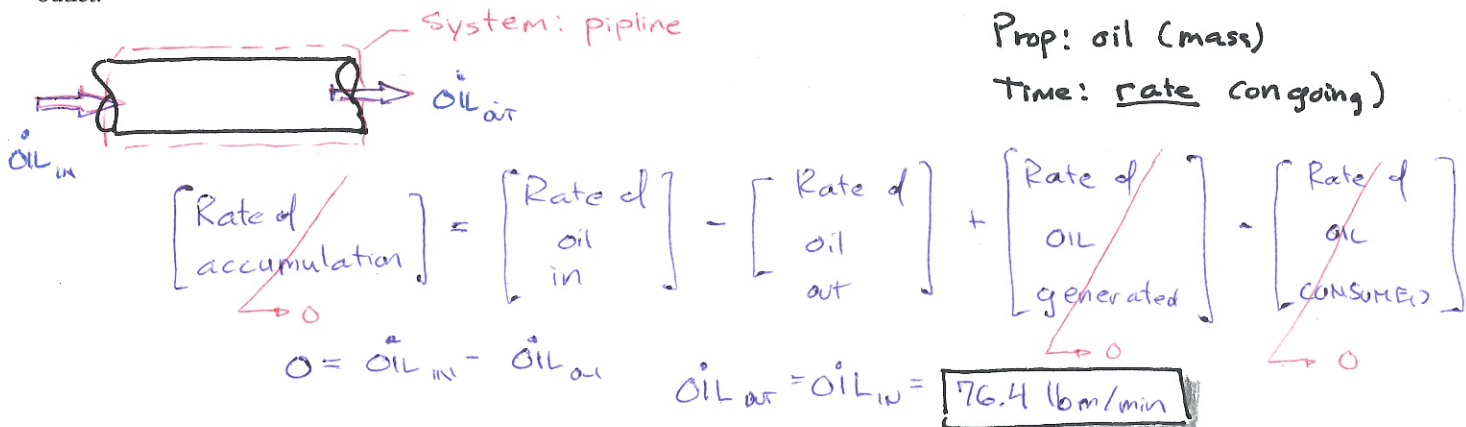 outlet.
System: pipline
Prop: oil (mass)
Time: rate (ongoing)
OİL OUT
OİL IN
[Rate of accumulation] = [Rate of oil in] - [Rate of oil out] + [Rate of OIL generated] - [Rate of OIL CONSUMED]
→ 0
→ 0
→ 0
0 = OİL IN - OİL OUT
OİL OUT = OİL IN = 76.4 lbm/min